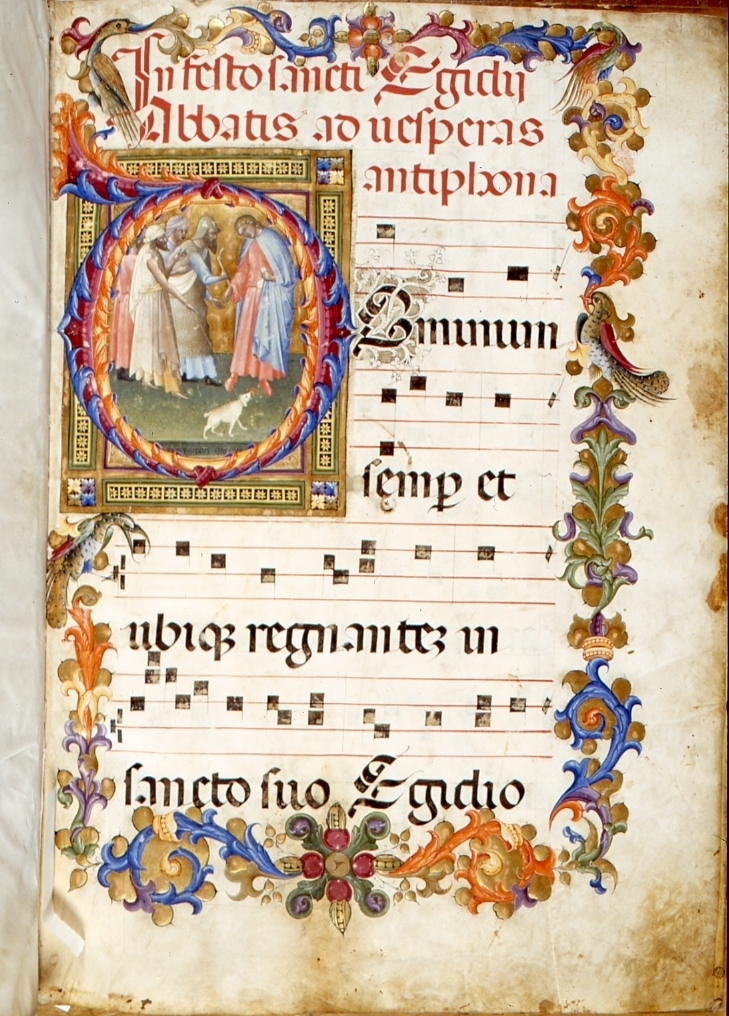 In festo sancti Egidij
Abbatis ad uesperas
antiphona
Dominum
semp et
ubiqꝫ regnanteꝫ in
sancto suo Egidio